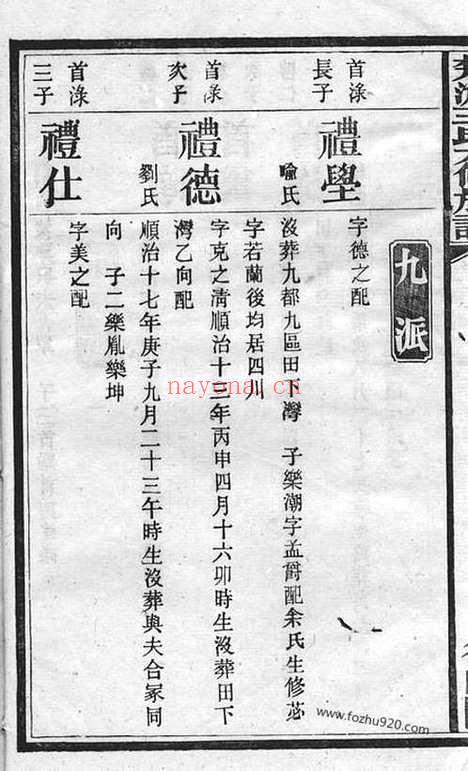 九派
首淥
長子
禮學
字德之配
喻氏
沒葬九都九區田下灣 子樂潮字孟爵配余氏生修苾
字若蘭後均居四川
首淥
次子
禮德
字克之清順治十三年丙申四月十六卯時生沒葬田下
灣乙向配
劉氏
順治十七年庚子九月二十三午時生沒葬與夫合冢同
向 子二樂胤樂坤
首淥
三子
禮仕
字美之配
nayona.cn
www.fozhu920.com